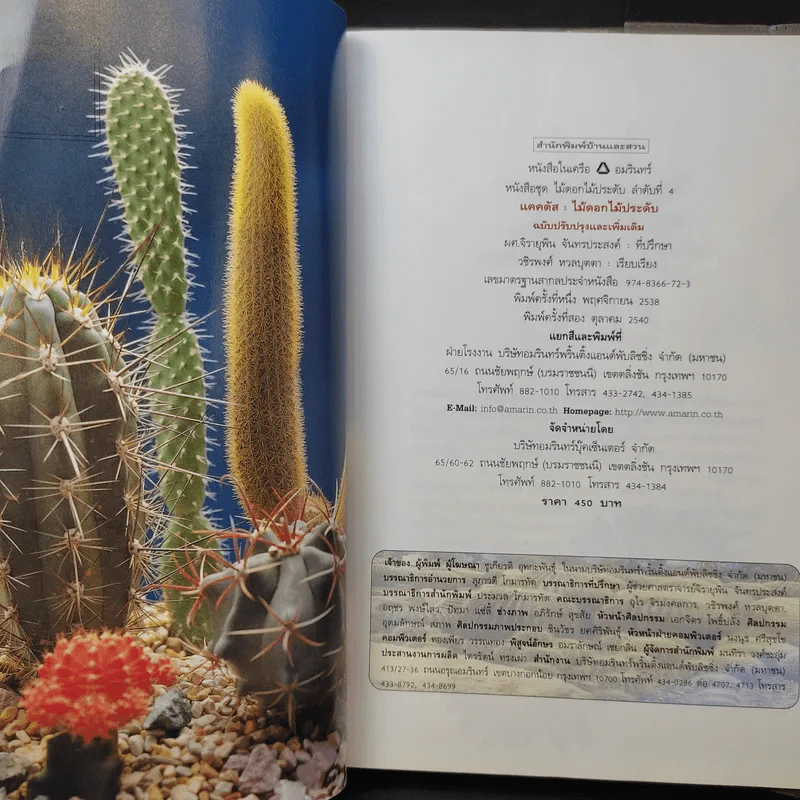 สำนักพิมพ์บ้านและสวน
หนังสือในเครือ อมรินทร์
หนังสือชุด ไม้ดอกไม้ประดับ ลำดับที่ 4
แคคตัส : ไม้ดอกไม้ประดับ
ฉบับปรับปรุงและเพิ่มเติม
ผศ.จิรายุพิน จันทรประสงค์ : ที่ปรึกษา
วชิรพงศ์ หวลบุตตา : เรียบเรียง
เลขมาตรฐานสากลประจำหนังสือ 974-8366-72-3
พิมพ์ครั้งที่หนึ่ง พฤศจิกายน 2538
พิมพ์ครั้งที่สอง ตุลาคม 2540
แยกสีและพิมพ์ที่
ฝ่ายโรงงาน บริษัทอมรินทร์พริ้นติ้งแอนด์พับลิชชิ่ง จำกัด (มหาชน)
65/16 ถนนชัยพฤกษ์ (บรมราชชนนี) เขตตลิ่งชัน กรุงเทพฯ 10170
โทรศัพท์ 882-1010 โทรสาร 433-2742, 434-1385
E-Mail: info@amarin.co.th Homepage: http://www.amarin.co.th
จัดจำหน่ายโดย
บริษัทอมรินทร์บุ๊คเซ็นเตอร์ จำกัด
65/60-62 ถนนชัยพฤกษ์ (บรมราชชนนี) เขตตลิ่งชัน กรุงเทพฯ 10170
โทรศัพท์ 882-1010 โทรสาร 434-1384
ราคา 450 บาท
เจ้าของ ผู้พิมพ์ ผู้โฆษณา ชูเกียรติ อุทกะพันธุ์ ในนามบริษัทอมรินทร์พริ้นติ้งแอนด์พับลิชชิ่ง จำกัด (มหาชน)
บรรณาธิการอำนวยการ สุภาวดี โกมารทัต บรรณาธิการที่ปรึกษา ผู้ช่วยศาสตราจารย์จิรายุพิน จันทรประสงค์
บรรณาธิการสำนักพิมพ์ ประมวล โกมารทัต คณะบรรณาธิการ อุไร จิรมงคลการ วชิรพงศ์ หวลบุตตา
อฤชร พงษ์ไสว ปัทมา แซ่ลี้ ช่างภาพ อภิรักษ์ สุขสัย หัวหน้าศิลปกรรม เอกจิตร โพธิ์ปลั่ง ศิลปกรรม
อุดมลักษณ์ สภาพ ศิลปกรรมภาพประกอบ ชินวัชร ยศศิริพันธุ์ หัวหน้าฝ่ายคอมพิวเตอร์ นงนุช ศรีสุขโช
คอมพิวเตอร์ ทองเพียว วรรณทอง พิสูจน์อักษร อมราลักษณ์ เชยกลิ่น ผู้จัดการสำนักพิมพ์ มนทิรา วงศ์ชะอุ่ม
ประสานงานการผลิต ไตรรัตน์ ทรงเผ่า สำนักงาน บริษัทอมรินทร์พริ้นติ้งแอนด์พับลิชชิ่ง จำกัด (มหาชน)
413/27-36 ถนนอรุณอมรินทร์ เขตบางกอกน้อย กรุงเทพฯ 10700 โทรศัพท์ 434-0286 ต่อ 4707, 4713 โทรสาร
433-8792, 434-8699